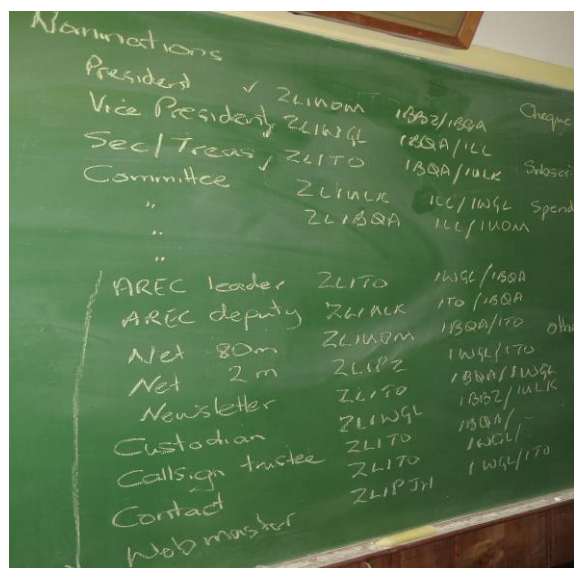 Nominations
President ✓ ZL1UOM 1BBZ/1BQA Cheque
Vice President ✓ ZL1WGL 1BQA/1LL
Sec/Treas ✓ ZL1TO 1BQA/1ULK Subscri
Committee ZL1ULK 1LL/1WGL Spend
" ZL1BQA 1LL/1UOM
"
"
AREC leader ZL1TO 1WGL/1BQA
AREC deputy ZL1ULK 1TO/1BQA
Net 80m ZL1UOM 1BQA/1TO
Net 2m ZL1PZ 1WGL/1TO
Newsletter ZL1TO 1BQA/1WGL
Custodian ZL1WGL 1BBZ/1ULK
Callsign trustee ZL1TO 1BQA/-
Contact ZL1TO 1WGL/-
Webmaster ZL1PJH 1WGL/1TO